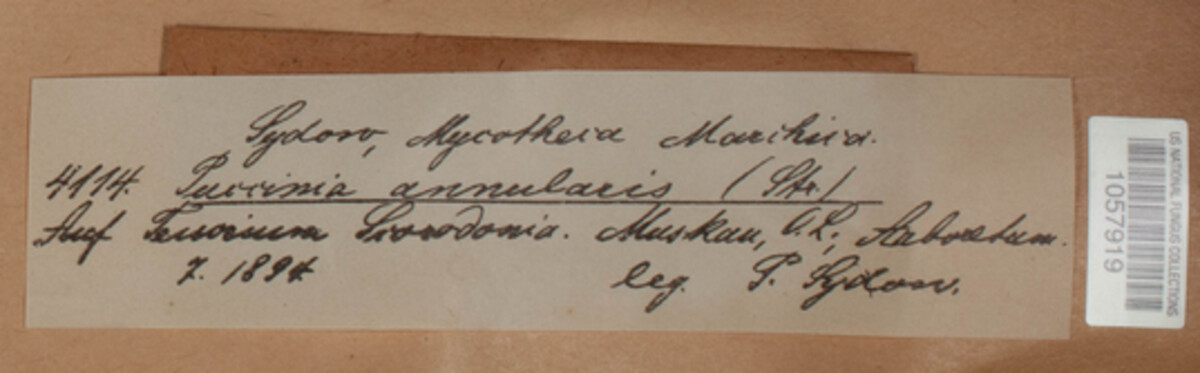 Sydow, Mycotheca Marchica.
4114. Puccinia annularis (Str.)
Auf Teucrium Scorodonia. Muskau, O.L., Arboretum.
7. 1894
leg. P. Sydow.
US NATIONAL FUNGUS COLLECTIONS
1057919